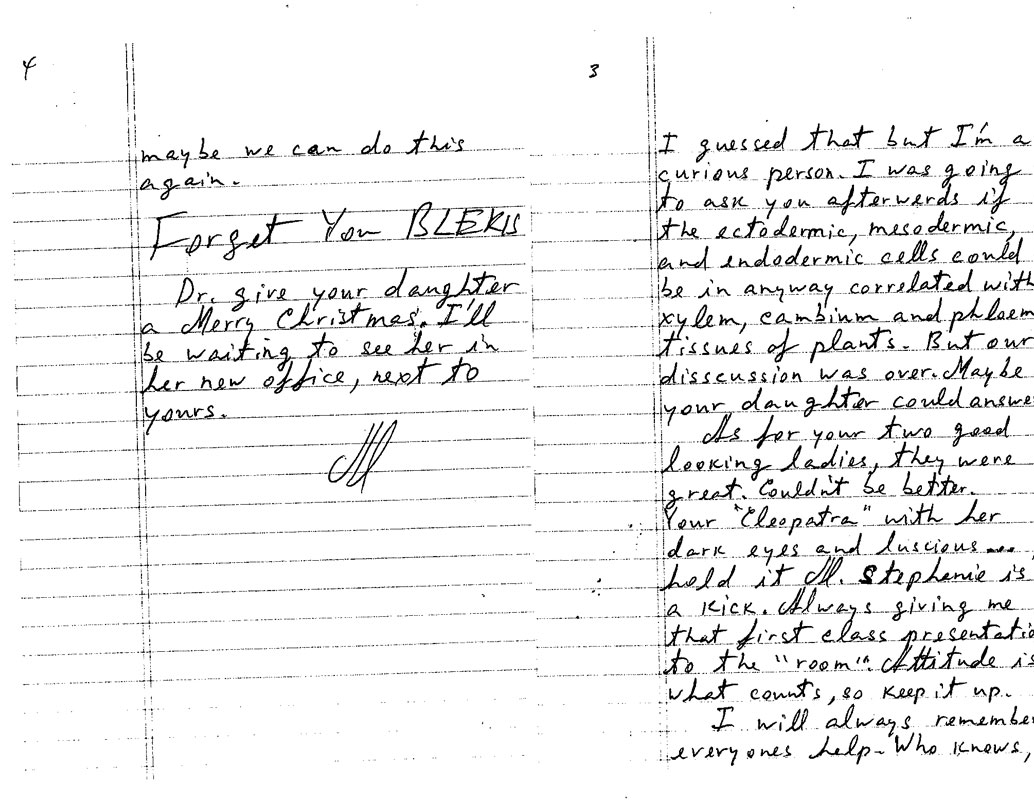 3
I guessed that but I'm a
curious person. I was going
to ask you afterwerds if
the ectodermic, mesodermic,
and endodermic cells could
be in anyway correlated with
xylem, cambium and phloem
tissues of plants. But our
disscussion was over. Maybe
your daughter could answe
As for your two good
looking ladies, they were
great. Couldn't be better.
Your "Cleopatra" with her
dark eyes and luscious....,
hold it M. Stephenie is
a kick. Always giving me
that first class presentatio
to the "room". Attitude is
what counts, so keep it up.
I will always remembe
everyones help. Who knows,
4
maybe we can do this
again.
Forget You BLEKIS
Dr. give your daughter
a Merry Christmas. I'll
be waiting to see her in
her new office, next to
yours.
M